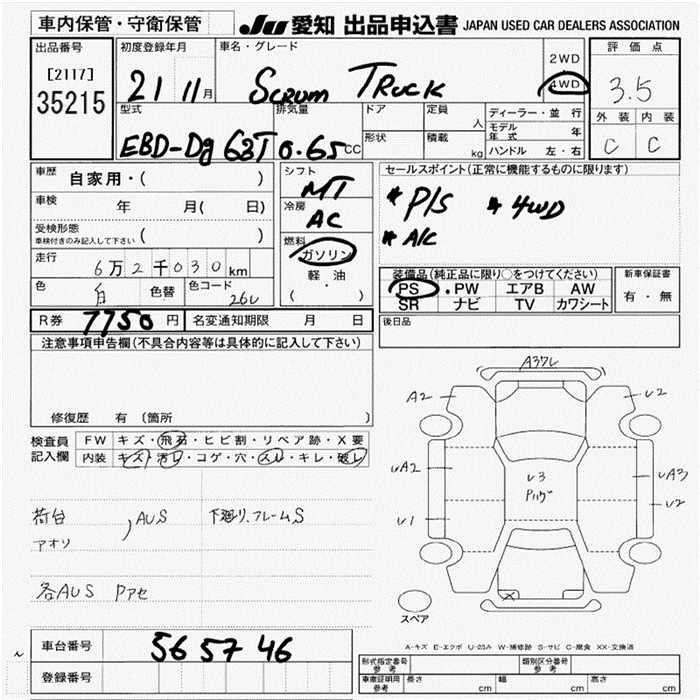 車内保管・守衛保管
JU 愛知 出品申込書 JAPAN USED CAR DEALERS ASSOCIATION
出品番号
[2117]
35215
初度登録年月
21 11月
車名・グレード
SCRUM TRUCK
2WD
4WD
評価点
3.5
外装 内装
C C
型式
EBD-DG63T
排気量
0.65CC
ドア
定員
人
形状
積載
kg
ディーラー・並行
モデル年式 年
ハンドル 左・右
車歴 自家用・( )
車検 年 月( 日)
受検形態
車検付きのみ記入して下さい ( )
走行 6万2千030km
色 白 色替 色コード 26U
シフト
MT
冷房
AC
燃料
ガソリン
軽油
( ・ )
セールスポイント(正常に機能するものに限ります)
* P/S * 4WD
* A/C
装備品(純正品に限り○をつけてください)
PS ・PW エアB AW
SR ナビ TV カワシート
新車保証書
有・無
後日品
R券 7750円 名変通知期限 月 日
注意事項申告欄(不具合内容等は具体的に記入して下さい)
修復歴 有 (箇所 )
検査員記入欄
FW キズ・飛石・ヒビ割・リペア跡・X要
内装 キズ・汚レ・コゲ・穴・スレ・キレ・破レ
荷台
アオリ
,AUS 下廻リ、フレームS
各AUS Pアセ
A37L
A2
U2
UA2
U3
UA3
U2
U1
X
スペア
A-キズ E-エクボ U-凹み W-補修跡 S-サビ C-腐食 XX-交換済
車台番号 565746
登録番号
形式指定番号 参考
類別区分番号 参考
車庫証明用 参考 長さ cm 幅 cm 高さ cm